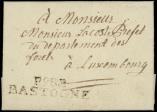 À Monsieur
Monsieur Lacoste Préfet
du département des
forêts
à Luxembourg
BASTOGNE